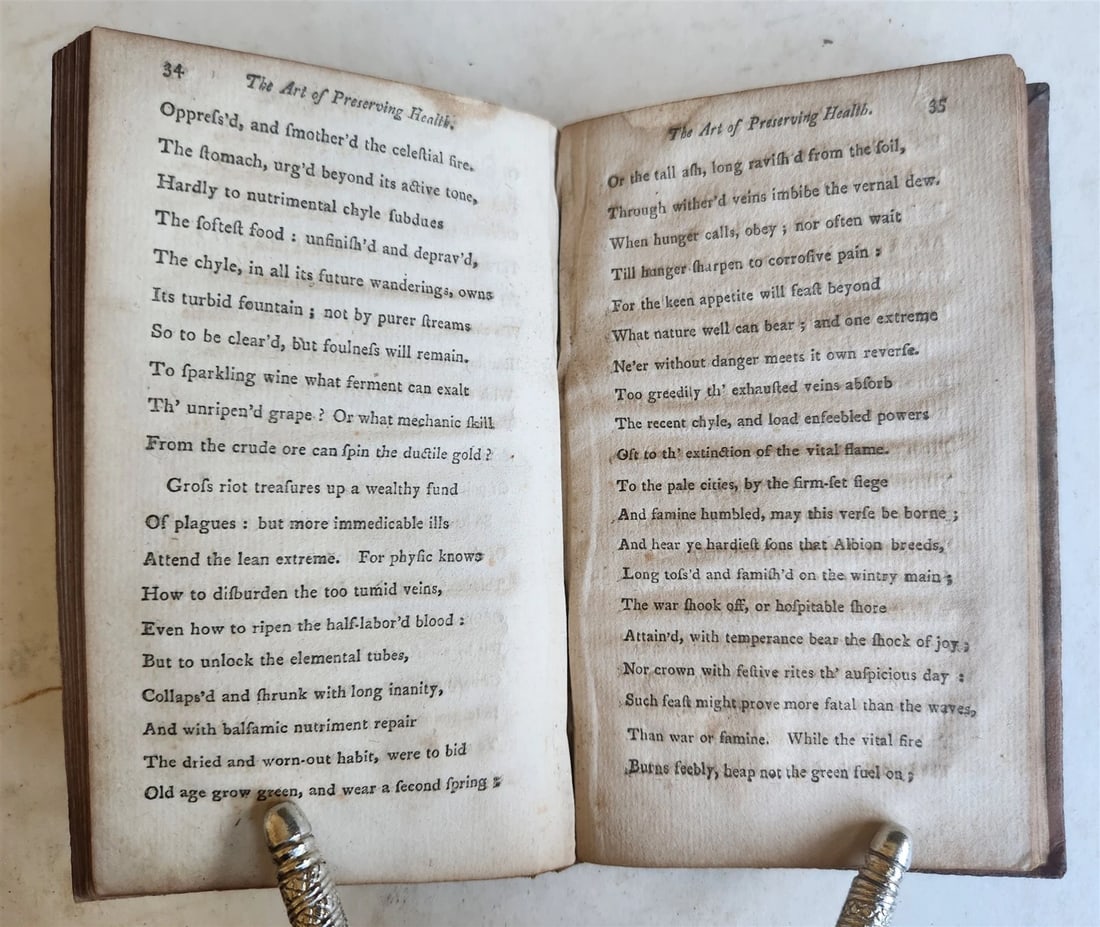 34
The Art of Preserving Health.
Oppreſs'd, and ſmother'd the celeſtial fire.
The ſtomach, urg'd beyond its active tone,
Hardly to nutrimental chyle ſubdues
The ſofteſt food : unfiniſh'd and deprav'd,
The chyle, in all its future wanderings, owns
Its turbid fountain ; not by purer ſtreams
So to be clear'd, but foulneſs will remain.
To ſparkling wine what ferment can exalt
Th' unripen'd grape ? Or what mechanic ſkill
From the crude ore can ſpin the ductile gold ?
Groſs riot treaſures up a wealthy fund
Of plagues : but more immedicable ills
Attend the lean extreme. For phyſic knows
How to diſburden the too tumid veins,
Even how to ripen the half-labor'd blood :
But to unlock the elemental tubes,
Collaps'd and ſhrunk with long inanity,
And with balſamic nutriment repair
The dried and worn-out habit, were to bid
Old age grow green, and wear a ſecond ſpring ;
The Art of Preserving Health.
35
Or the tall aſh, long raviſh'd from the ſoil,
Through wither'd veins imbibe the vernal dew.
When hunger calls, obey ; nor often wait
Till hunger ſharpen to corroſive pain :
For the keen appetite will feaſt beyond
What nature well can bear ; and one extreme
Ne'er without danger meets it own reverſe.
Too greedily th' exhauſted veins abſorb
The recent chyle, and load enfeebled powers
Oft to th' extinction of the vital flame.
To the pale cities, by the firm-ſet ſiege
And famine humbled, may this verſe be borne ;
And hear ye hardieſt ſons that Albion breeds,
Long toſs'd and famiſh'd on the wintry main ;
The war ſhook off, or hoſpitable ſhore
Attain'd, with temperance bear the ſhock of joy ;
Nor crown with feſtive rites th' auſpicious day :
Such feaſt might prove more fatal than the waves,
Than war or famine. While the vital fire
Burns feebly, heap not the green fuel on ;